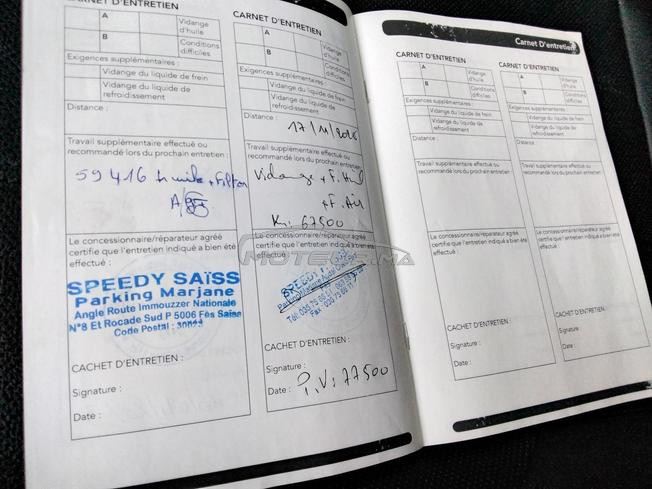 CARNET D'ENTRETIEN
A
Vidange d'huile
B
Conditions difficiles
Exigences supplémentaires :
Vidange du liquide de frein
Vidange du liquide de refroidissement
Distance :
Travail supplémentaire effectué ou
recommandé lors du prochain entretien :
59416 Huile + Filtre
Le concessionnaire/réparateur agréé
certifie que l'entretien indiqué a bien été
effectué :
SPEEDY SAïSS
Parking Marjane
Angle Route Immouzzer Nationale
N°8 Et Rocade Sud P 5006 Fès Saïss
Code Postal :
CACHET D'ENTRETIEN :
Signature :
Date :
CARNET D'ENTRETIEN
A
Vidange d'huile
B
Conditions difficiles
Exigences supplémentaires :
Vidange du liquide de frein
Vidange du liquide de refroidissement
Distance :
17/11/2016
Travail supplémentaire effectué ou
recommandé lors du prochain entretien :
Vidange + F. Huil
+ F. Air
K: 67500
Le concessionnaire/réparateur agréé
certifie que l'entretien indiqué a bien été
effectué :
SPEEDY
CACHET D'ENTRETIEN :
Signature :
Date :
P.V: 77500
Carnet D'entretien
CARNET D'ENTRETIEN
A
Vidange d'huile
B
Conditions difficiles
Exigences supplémentaires :
Vidange du liquide de frein
Vidange du liquide de refroidissement
Distance :
Travail supplémentaire effectué ou
recommandé lors du prochain entretien :
Le concessionnaire/réparateur agréé
certifie que l'entretien indiqué a bien été
effectué :
CACHET D'ENTRETIEN :
Signature :
Date :
CARNET D'ENTRETIEN
A
Vidange d'huile
B
Conditions difficiles
Exigences supplémentaires :
Vidange du liquide de frein
Vidange du liquide de refroidissement
Distance :
Travail supplémentaire effectué ou
recommandé lors du prochain entretien :
Le concessionnaire/réparateur agréé
certifie que l'entretien indiqué a bien été
effectué :
CACHET D'ENTRETIEN :
Signature :
Date :